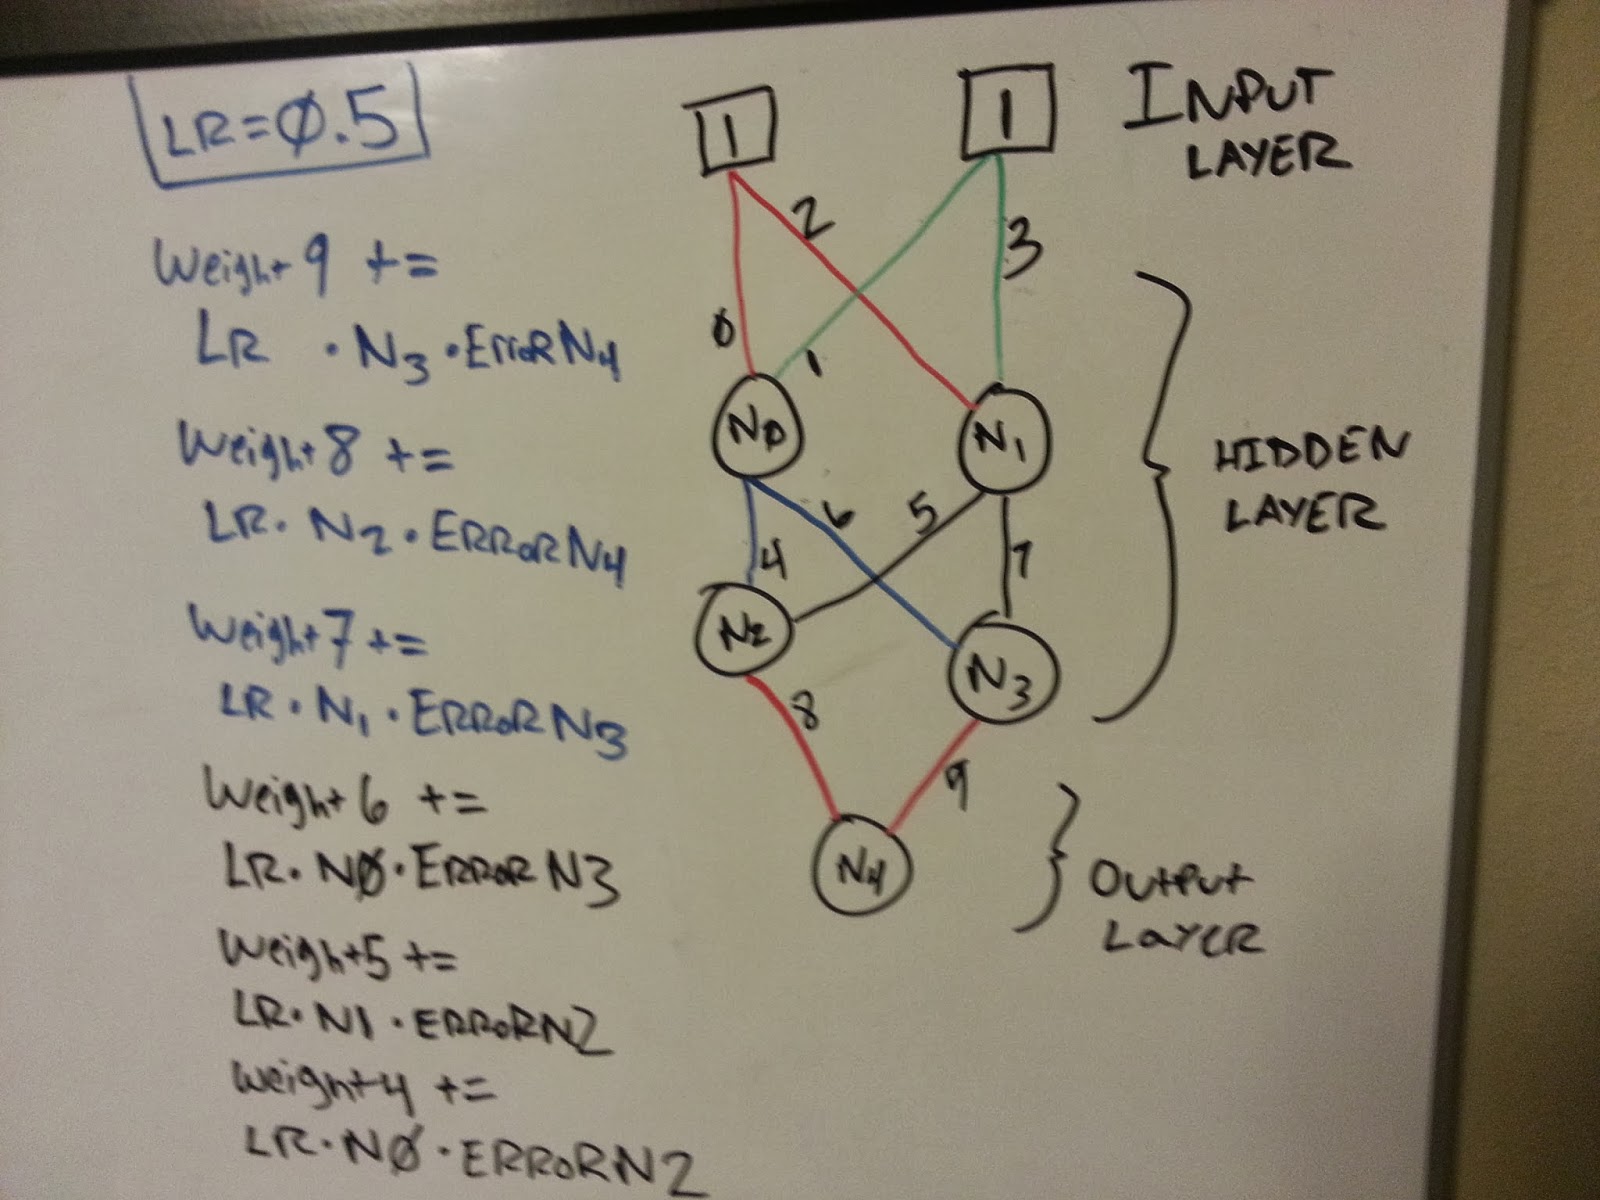 LR=Ø.5
Weight 9 +=
LR · N3 · ErroRN4
Weight 8 +=
LR · N2 · ERRoRN4
Weight 7 +=
LR · N1 · ERRoRN3
Weight 6 +=
LR · NØ · ERRoR N3
Weight 5 +=
LR · N1 · ERRoRN2
Weight 4 +=
LR · NØ · ERRoRN2
1 1
INPUT
LAYER
2
3
Ø 1
NØ N1
6 5
4 7
N2 N3
8 9
N4
HIDDEN
LAYER
OutPut
LayER